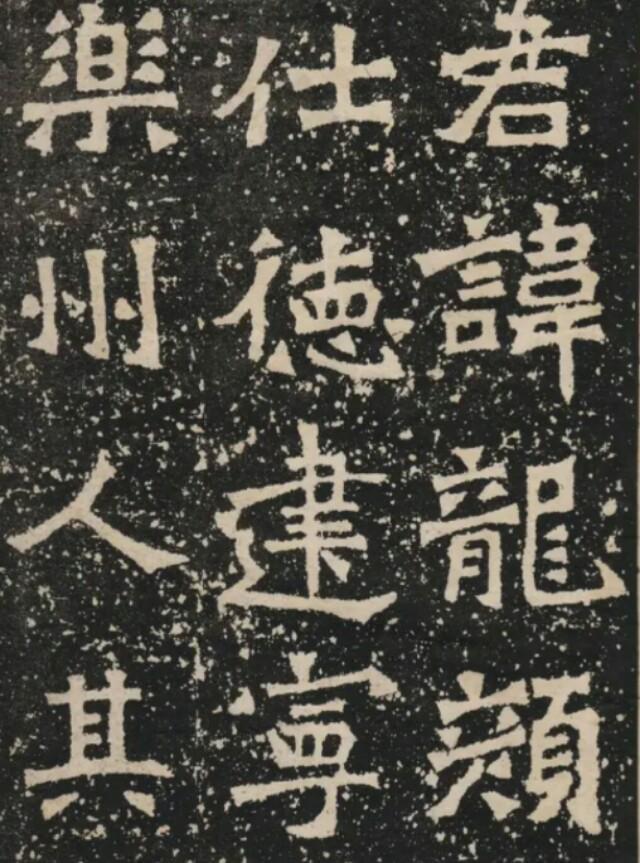 君諱龍顔
仕德建寧
樂州人其